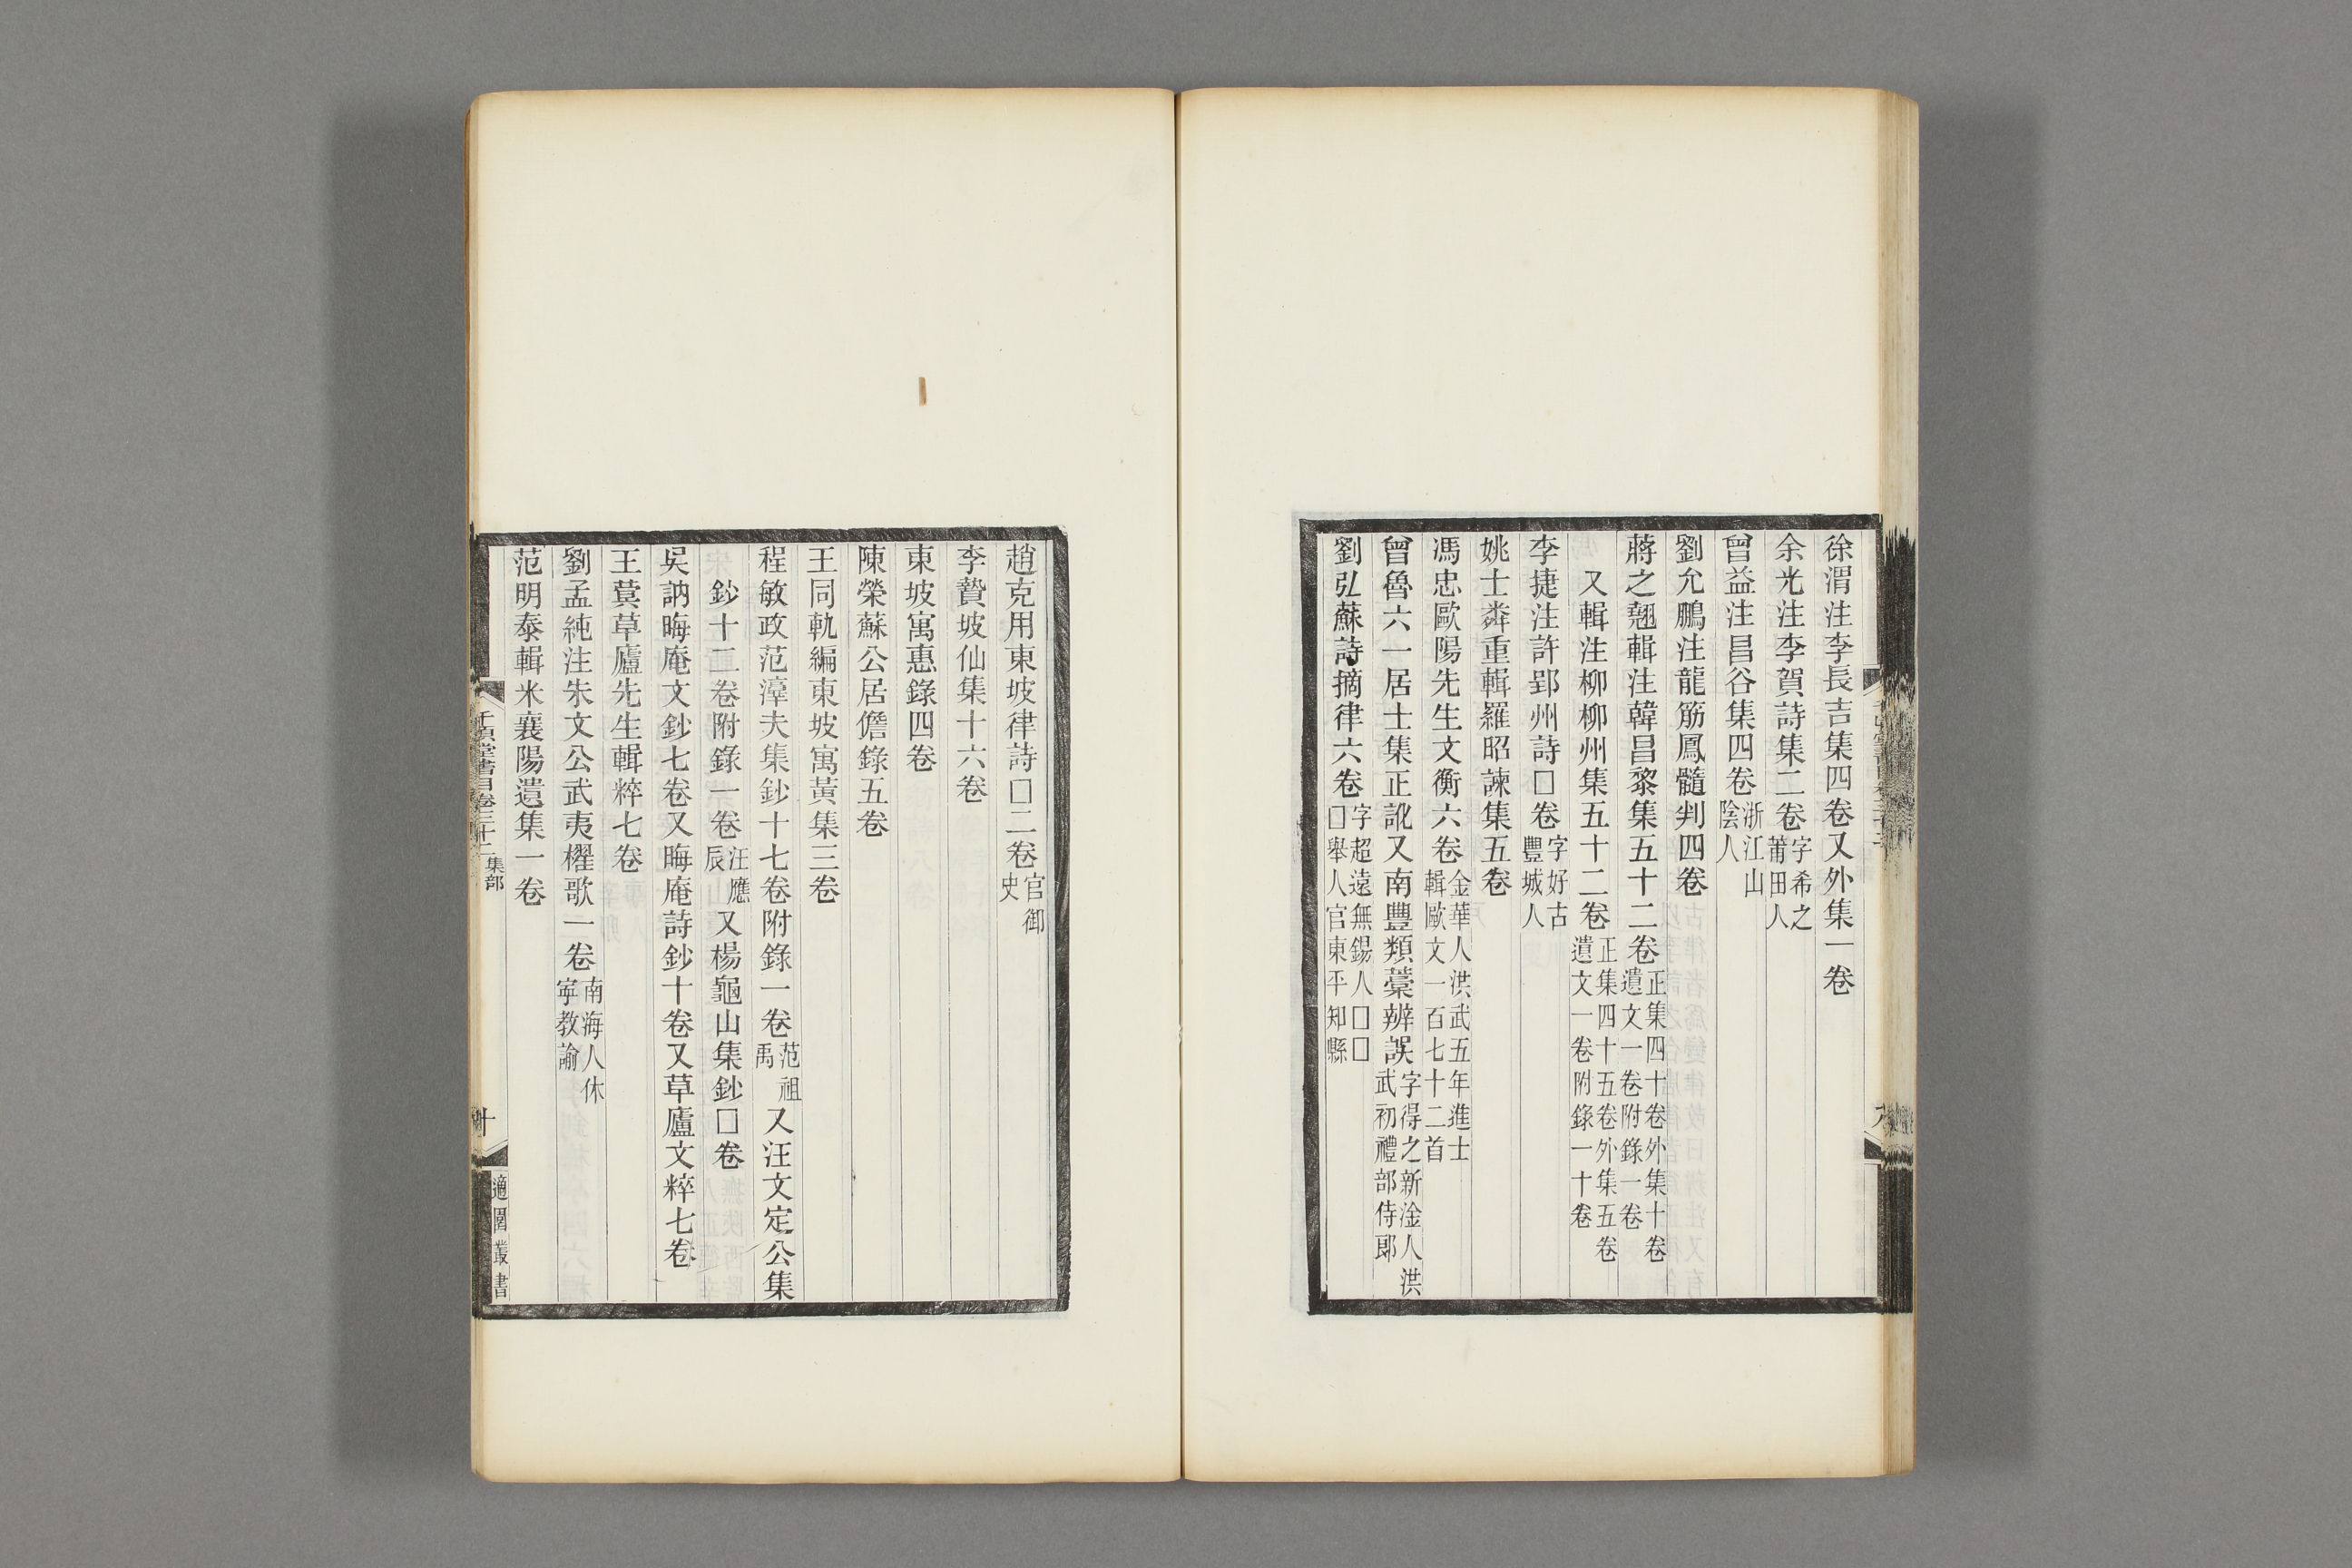 徐渭注李長吉集四卷又外集一卷
余光注李賀詩集二卷字希之莆田人
曾益注昌谷集四卷浙江山陰人
劉允鵬注龍筋鳳髓判四卷
蔣之翹輯注韓昌黎集五十二卷正集四十卷外集十卷遺文一卷附錄一卷
又輯注柳柳州集五十二卷正集四十五卷外集五卷遺文一卷附錄一十卷
李捷注許郢州詩□卷字好古豐城人
姚士粦重輯羅昭諫集五卷
馮忠歐陽先生文衡六卷金華人洪武五年進士輯歐文一百七十二首
曾魯六一居士集正訛又南豐類藁辨誤字得之新淦人洪武初禮部侍郎
劉弘蘇詩摘律六卷字超遠無錫人□□□舉人官東平知縣
趙克用東坡律詩□二卷官御史
李贄坡仙集十六卷
東坡寓惠錄四卷
陳榮蘇公居儋錄五卷
王同軌編東坡寓黃集三卷
程敏政范淳夫集鈔十七卷附錄一卷范祖禹又汪文定公集
鈔十二卷附錄一卷汪應辰又楊龜山集鈔□卷
吳訥晦庵文鈔七卷又晦庵詩鈔十卷又草廬文粹七卷
王蓂草廬先生輯粹七卷
劉孟純注朱文公武夷櫂歌一卷南海人休寧教諭
范明泰輯米襄陽遺集一卷
千頃堂書目卷三十二 集部
十
適園叢書